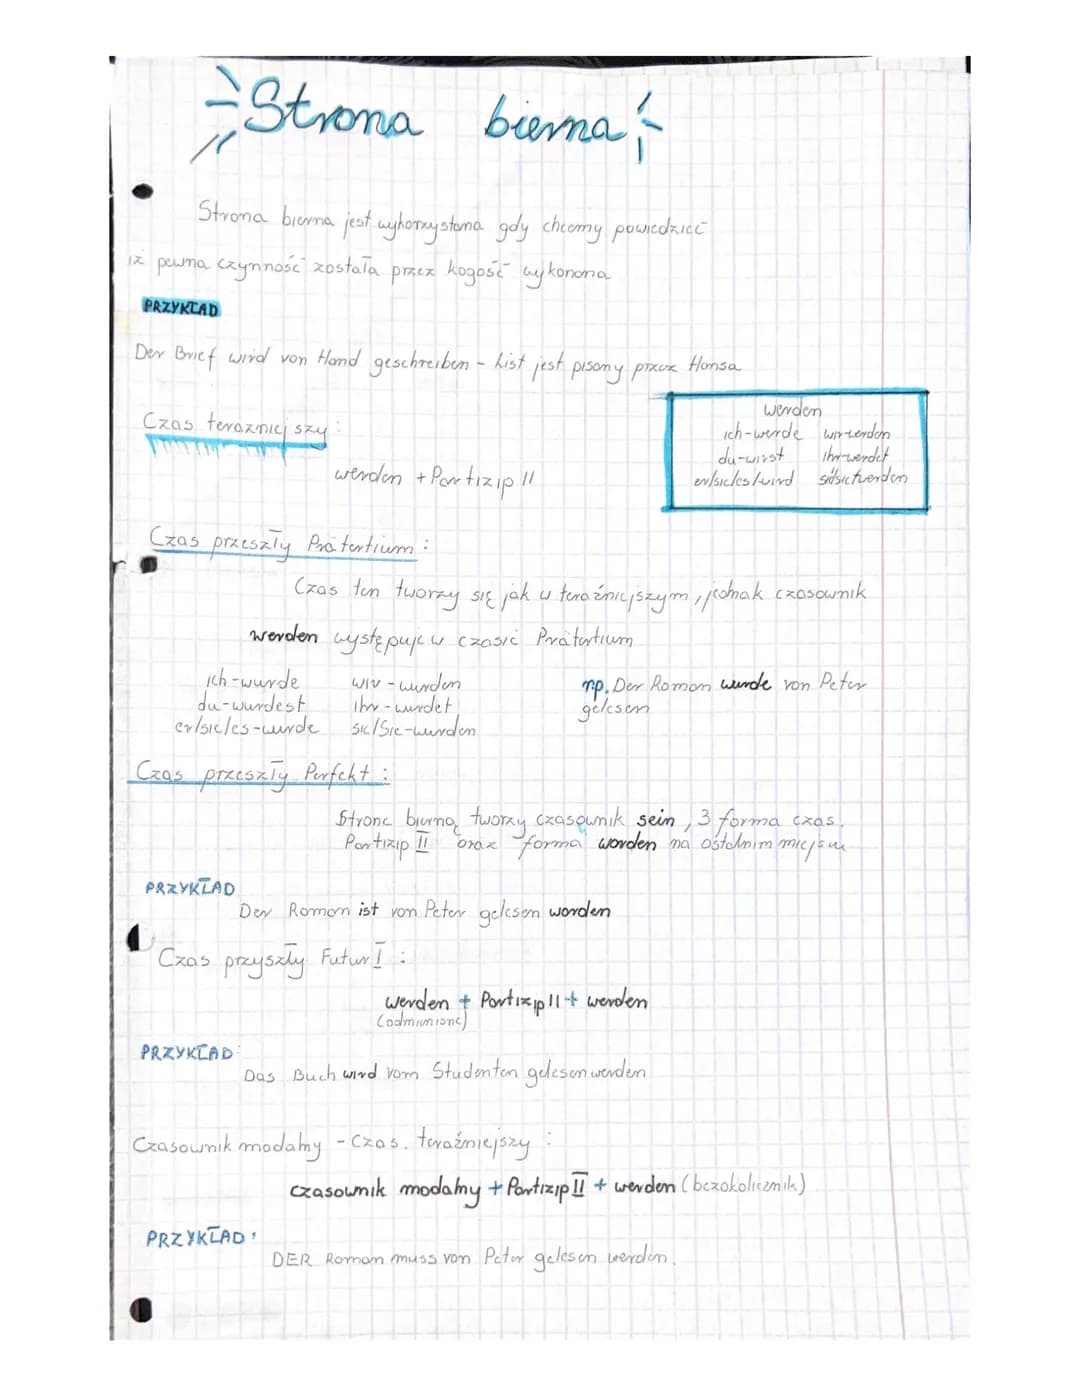 Strona bierna
Strona bierna jest wykorzystana gdy chcemy powiedzieć
iż pewna czynność została przez kogoś wykonana
PRZYKŁAD
Der Brief wird von Hand geschreiben - List jest pisany przez Hansa
Czas terazniejszy:
werden + Partizip II
werden
ich-werde wir-werden
du-wirst ihr-werdet
er/sie/es/wird sie/Sie-werden
Czas przeszły Prätertium:
Czas ten tworzy się jak w teraźniejszym, jednak czasownik
werden występuje w czasie Prätertium
ich-wurde wir-wurden
du-wurdest ihr-wurdet
er/sie/es-wurde sie/Sie-wurden
np. Der Roman wurde von Peter
gelesen
Czas przeszły Perfekt:
Stronę bierną tworzy czasownik sein, 3 forma czas.
Partizip II oraz forma worden na ostatnim miejscu
PRZYKŁAD
Der Roman ist von Peter gelesen worden
Czas przyszły Futur I:
werden + Partizip II + werden
(odmienione)
PRZYKŁAD:
Das Buch wird vom Studenten gelesen werden
Czasownik modalny - Czas. teraźniejszy:
czasownik modalny + Partizip II + werden (bezokolicznik)
PRZYKŁAD:
DER Roman muss von Peter gelesen werden.